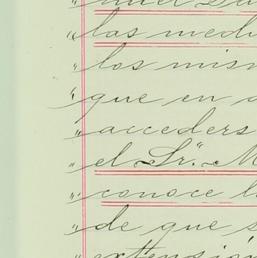 " las medi
" los mism
" que en a
" acceders
" el Sr. M
" conoce l
" de que s
" extensión